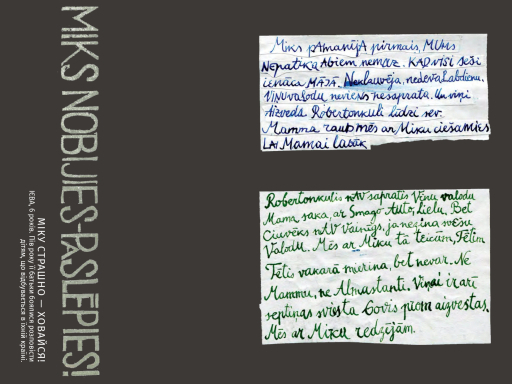 MIKS NOBIJIES-PASLĒPIES!
МІКУ СТРАШНО — ХОВАЙСЯ!
ІЄВА, 6 років. Пів року її батьки боялися розповісти
дітям, що відбувається в їхній країні.
Miks pAmanījA pirmais, MUMs
Nepatika Abiem nemaz. KAD viSi seši
ienāca MĀJĀ. Neklauvēja, nedeva Labdienu.
Viņu valodu neviens nesaprata. Un viņi
Aizveda Robertonkuli līdzi sev.
Mamma raud mēs ar Miku ciešamies
LAI Mamai labāk
Robertonkulis nAV sapratis Viņu valodu
Mama saka, ar Smago Auto, lielu. Bet
Cilvēks nAV Vainīgs, ja nezina svešu
Valodu. Mēs ar Miku tā teicām, Tētim
Tētis vakarā mierina, bet nevar. Ne
Mammu, ne Almastanti. Viņai ir arī
septiņas sviesta Govis prom aizvestas.
Mēs ar Miku redzējām.